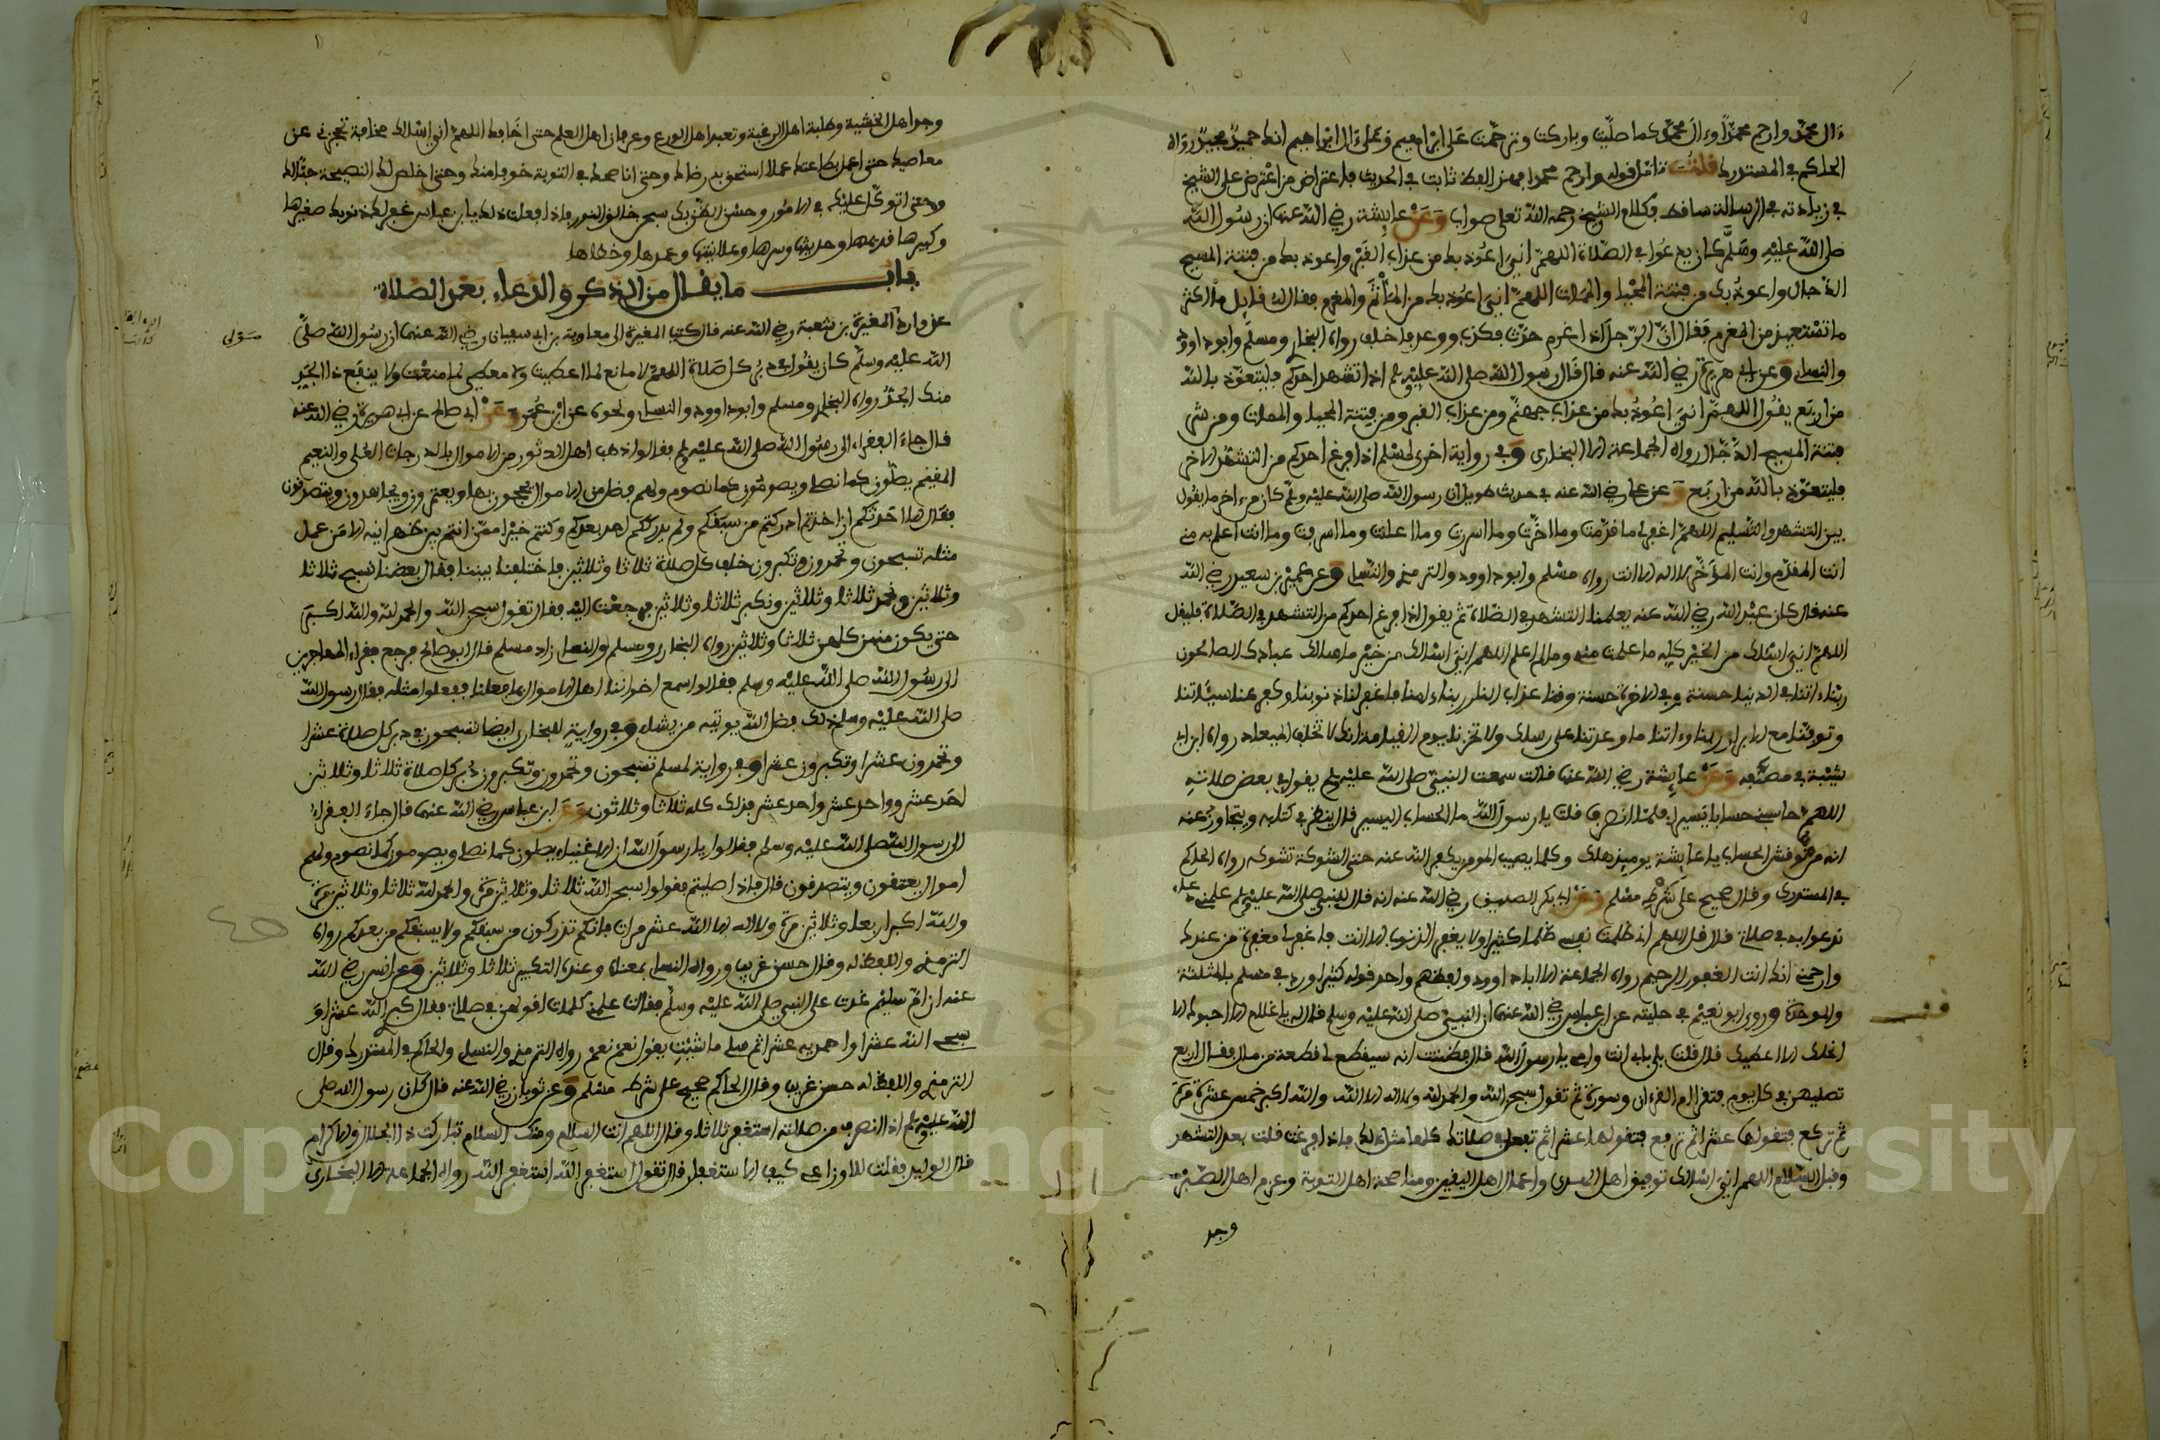 ءال محمد وارحم محمدا وءال محمد كما صليت وباركت وترحمت على ابراهيم وعلى ءال ابراهيم انك حميد مجيد رواه
الحاكم في المستدرك قلت تامل قوله وارحم محمدا فهذا اللفظ ثابت في الحديث فاعتراض من اعترض على الشيخ
في زيادته في الرسالة ساقط وكلام الشيخ رحمه الله تعلى صواب وعن عايشة رضي الله عنها ان رسول الله
صلى الله عليه وسلم كان يدعوا في الصلاة اللهم اني اعوذ بك من عذاب القبر واعوذ بك من فتنة المسيح
الدجال واعوذ بك من فتنة المحيا والممات اللهم اني اعوذ بك من الماثم والمغرم فقال له قايل ما اكثر
ما تستعيذ من المغرم فقال ان الرجل اذا غرم حدث فكذب ووعد فاخلف رواه البخاري ومسلم وابو داوود
والنساي وعن ابي هريرة رضي الله عنه قال قال رسول الله صلى الله عليه وسلم اذا تشهد احدكم فليتعوذ بالله
من اربع يقول اللهم اني اعوذ بك من عذاب جهنم ومن عذاب القبر ومن فتنة المحيا والممات ومن شر
فتنة المسيح الدجال رواه الجماعة الا البخاري وفي رواية اخرى لمسلم اذا فرغ احدكم من التشهد الاخر
فليتعوذ بالله من اربع وعن علي رضي الله عنه في حديث طويل ان رسول الله صلى الله عليه وسلم كان من ءاخر ما يقول
بين التشهد والتسليم اللهم اغفر لي ما قدمت وما اخرت وما اسررت وما اعلنت وما اسرفت وما انت اعلم به مني
انت المقدم وانت المؤخر لا اله الا انت رواه مسلم وابو داوود والترمذي والنساي وعن عمير بن سعيد رضي الله
عنه قال كان عبد الله رضي الله عنه يعلمنا التشهد في الصلاة ثم يقول اذا فرغ احدكم من التشهد في الصلاة فليقل
اللهم اني اسئلك من الخير كله ما علمت منه وما لم اعلم اللهم اني اسئلك من خير ما سالك عبادك الصالحون
ربنا ءاتنا في الدنيا حسنة وفي الاخرة حسنة وقنا عذاب النار ربنا ءامنا فاغفر لنا ذنوبنا وكفر عنا سيئاتنا
وتوفنا مع الابرار ربنا وءاتنا ما وعدتنا على رسلك ولا تخزنا يوم القيامة انك لا تخلف الميعاد رواه ابن ابي
شيبة في مصنفه وعن عايشة رضي الله عنها قالت سمعت النبي صلى الله عليه وسلم يقول في بعض صلاته
اللهم حاسبني حسابا يسيرا فلما انصرف قلت يا رسول الله ما الحساب اليسير قال ينظر في كتابه ويتجاوز عنه
انه من نوقش الحساب يا عايشة يوميذ هلك وكلما يصيب المومن يكفر الله عنه حتى الشوكة تشوكه رواه الحاكم
في المستدرك وقال صحيح على شرط مسلم وعن ابي بكر الصديق رضي الله عنه انه قال للنبي صلى الله عليه وسلم علمني دعاء
ندعوا به في صلاتي قال قل اللهم اني ظلمت نفسي ظلما كثيرا ولا يغفر الذنوب الا انت فاغفر لي مغفرة من عندك
وارحمني انك انت الغفور الرحيم رواه الجماعة الا ابا داوود ولفظهم واحد قوله كثيرا ورد في مسلم بالمثلثة
والموحدة وروى ابو نعيم في حليته عن ابن عباس رضي الله عنهما ان النبي صلى الله عليه وسلم قال له يا غلام الا احبوك الا
انحلك الا اعطيك قال قلت بلى بابي انت وامي يا رسول الله قال فظننت انه سيقطع لي قطعة من مال فقال اربع
تصليهن في كل يوم فتقرا ام القرءان وسورة ثم تقول سبحن الله والحمد لله ولا اله الا الله والله اكبر خمس عشرة مرة
ثم تركع فتقولها عشرا ثم ترفع فتقولها عشرا ثم تفعل في صلاتك كلها مثل ذلك فاذا فرغت قلت بعد التشهد
وقبل السلام اللهم اني اسئلك توفيق اهل الهدى واعمال اهل اليقين ومناصحة اهل التوبة وعزم اهل الصبر
وجد
وجد اهل الخشية وطلبة اهل الرغبة وتعبد اهل الورع وعرفان اهل العلم حتى اخافك اللهم اني اسئلك مخافة تحجزني عن
معاصيك حتى اعمل بطاعتك عملا استحق به رضاك وحتى اناصحك في التوبة خوفا منك وحتى اخلص لك النصيحة حبا لك
وحتى اتوكل عليك في الامور وحسن الظن بك سبحن خالق النور فاذا فعلت ذلك يا ابن عباس غفر لك ذنوبك صغيرها
وكبيرها قديمها وحديثها وسرها وعلانيتها وعمدها وخطاها
باب ما يقال من الذكر والدعاء بعد الصلاة
عن وراد المغيرة بن شعبة رضي الله عنه قال كتب المغيرة الى معاوية بن ابي سفيان رضي الله عنهما ان رسول الله صلى
الله عليه وسلم كان يقول في دبر كل صلاة اللهم لا مانع لما اعطيت ولا معطي لما منعت ولا ينفع ذا الجد
منك الجد رواه البخاري ومسلم وابو داوود والنساي ونحوه عن ابن عمر وعن ابي صالح عن ابي هريرة رضي الله عنه
قال جاء الفقراء الى رسول الله صلى الله عليه وسلم فقالوا ذهب اهل الدثور من الاموال بالدرجات العلى والنعيم
المقيم يصلون كما نصلي ويصومون كما نصوم ولهم فضل من الاموال يحجون بها ويعتمرون ويجاهدون ويتصدقون
فقال الا احدثكم ان اخذتم ادركتم من سبقكم ولم يدرككم احد بعدكم وكنتم خير من انتم بين ظهرانيه الا من عمل
مثله تسبحون وتحمدون وتكبرون خلف كل صلاة ثلاثا وثلاثين فاختلفنا بيننا فقال بعضنا نسبح ثلاثا
وثلاثين ونحمد ثلاثا وثلاثين ونكبر ثلاثا وثلاثين فرجعت اليه فقال تقول سبحن الله والحمد لله والله اكبر
حتى يكون منهن كلهن ثلاثا وثلاثين رواه البخاري ومسلم والنساي زاد مسلم قال ابو صالح فرجع فقراء المهاجرين
الى رسول الله صلى الله عليه وسلم فقالوا سمع اخواننا اهل الاموال بما فعلنا ففعلوا مثله فقال رسول الله
صلى الله عليه وسلم ذلك فضل الله يوتيه من يشاء وفي رواية للبخاري ايضا تسبحون في دبر كل صلاة عشرا
وتحمدون عشرا وتكبرون عشرا وفي رواية لمسلم تسبحون وتحمدون وتكبرون دبر كل صلاة ثلاثا وثلاثين
احد عشر وواحد عشر واحد عشر فذلك كله ثلاثا وثلاثون وعن ابن عباس رضي الله عنهما قال جاء الفقراء
الى رسول الله صلى الله عليه وسلم فقالوا يا رسول الله ان الاغنياء يصلون كما نصلي ويصومون كما نصوم ولهم
اموال يعتقون ويتصدقون قال فاذا صليتم فقولوا سبحن الله ثلاثا وثلاثين مرة والحمد لله ثلاثا وثلاثين مرة
والله اكبر اربعا وثلاثين مرة ولا اله الا الله عشر مرات فانكم تدركون من سبقكم ولا يسبقكم من بعدكم رواه
الترمذي واللفظ له وقال حسن غريب ورواه النساي بمعناه وعنده التكبير ثلاثا وثلاثين وعن انس رضي الله
عنه ان ام سليم غدت على النبي صلى الله عليه وسلم فقالت علمني كلمات اقولهن في صلاتي فقال كبر الله عشرا و
سبحي الله عشرا واحمديه عشرا ثم سلي ما شيت يقول نعم نعم رواه الترمذي والنساي والحاكم في المستدرك وقال
الترمذي واللفظ له حسن غريب وقال الحاكم صحيح على شرط مسلم وعن ثوبان رضي الله عنه قال كان رسول الله صلى
الله عليه وسلم اذا انصرف من صلاته استغفر ثلاثا وقال اللهم انت السلام ومنك السلام تباركت ذا الجلال والاكرام
قال الوليد فقلت للاوزاعي كيف الاستغفار قال تقول استغفر الله استغفر الله رواه الجماعة الا البخاري
Copyright © King Saud University